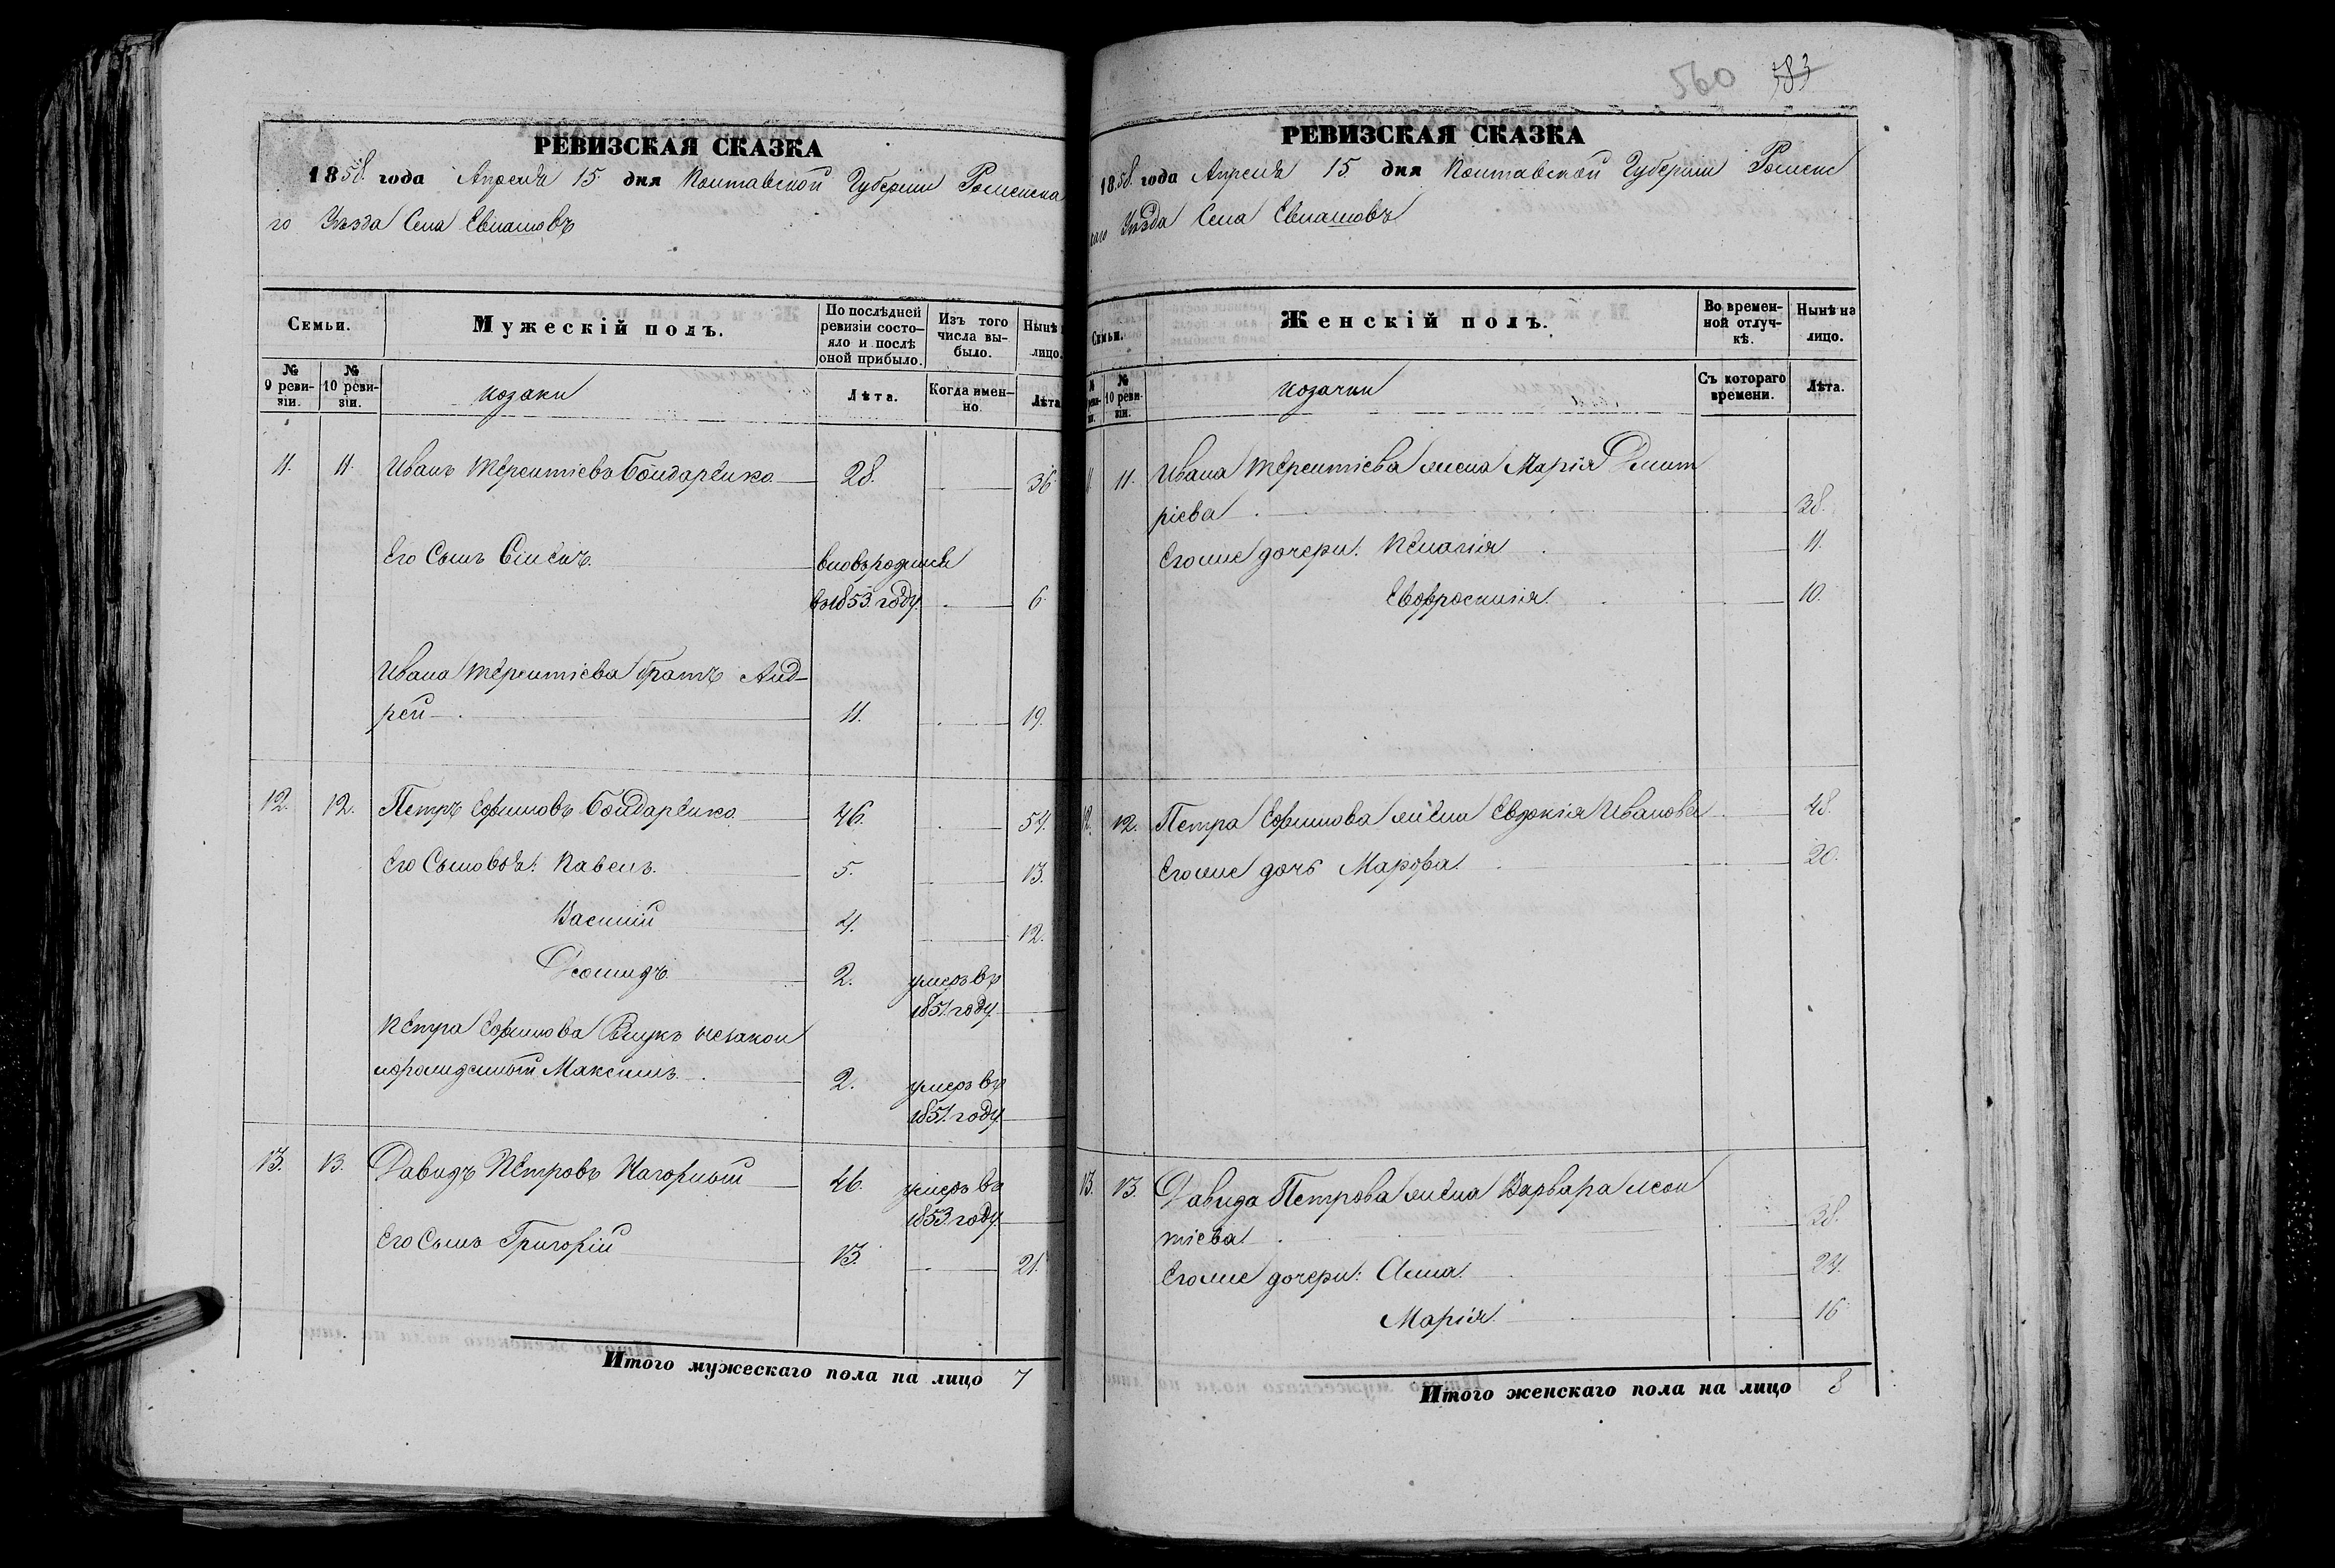 РЕВИЗСКАЯ СКАЗКА
1858. года Апреля 15 дня Полтавской Губернии Роменска
го Уѣзда Села Евлашовъ
Семьи.
Мужескій полъ.
По послѣдней ревизіи состо-
яло и послѣ оной прибыло.
Изъ того числа вы-
было.
Нынѣ
лицо.
№ 9 реви-
зіи.
№ 10 реви-
зіи.
козаки
Лѣта.
Когда имен-
но.
Лѣта
11. 11. Иванъ Терентіевъ Бондаренко 28. 36.
Его Сынъ вновьродился
въ 1853. году. 6.
Ивана Терентіева братъ Анд-
рей 11. 19.
12. 12. Петръ Ефимовъ Бондаренко 46. 54.
Его Сыновья: Павелъ. 5. 13.
Василій 4. 12.
2. умеръ въ
1851. году.
Петра Ефимова Внукъ незакон
норожденный Максимъ. 2. умеръ въ
1851. году.
13. 13. Давидъ Петровъ Нагорный 46. умеръ въ
1853 году.
Его Сынъ Григорій 13. 21.
Итого мужескаго пола на лицо 7
560 583
РЕВИЗСКАЯ СКАЗКА
1858. года Апреля 15 дня Полтавской Губернии Роменс
каго Уѣзда Села Евлашовъ
Семьи.
Женскій полъ.
Во времен-
ной отлуч-
кѣ.
Нынѣ на
лицо.
№ реви-
зіи.
№ 10 реви-
зіи.
козачки
Съ котораго
времени.
Лѣта.
11. 11. Ивана Терентіева жена Марія Димит
ріева 38.
Егоже дочери: Пелагія 11.
Евфросинія. 10.
12. 12. Петра Ефимова жена Евдокія Иванова 48.
Егоже дочь Марфа. 20.
13. 13. Давида Петрова жена Варвара Леон
тіева 38.
Егоже дочери: Анна. 24.
Марія. 16
Итого женскаго пола на лицо 8